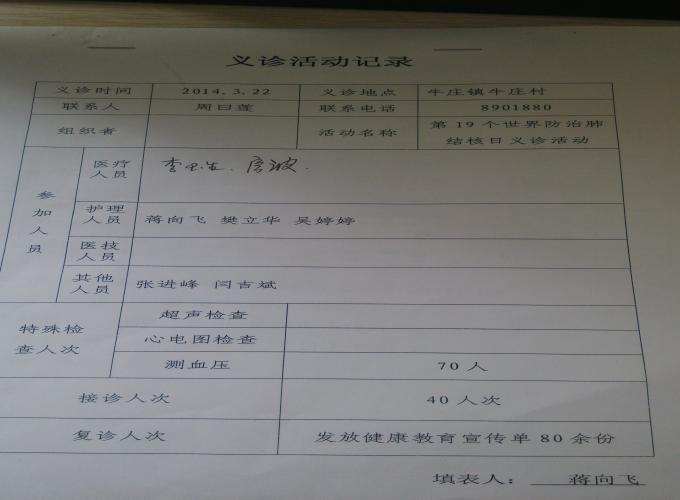 义诊活动记录
义诊时间 2014.3.22 义诊地点 牛庄镇牛庄村
联系人 周曰莲 联系电话 8901880
组织者 活动名称 第19个世界防治肺
结核日义诊活动
参加人员
医疗
人员
李 房波.
护理
人员
蒋向飞 樊立华 吴婷婷
医技
人员
其他
人员
张进峰 闫吉斌
特殊检
查人次
超声检查
心电图检查
测血压 70人
接诊人次 40人次
复诊人次 发放健康教育宣传单80余份
填表人: 蒋向飞